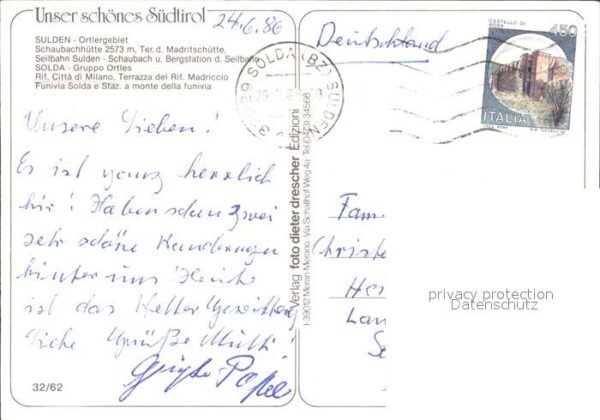 Unser schönes Südtirol
24.6.86
SULDEN - Ortlergebiet
Schaubachhütte 2573 m, Ter. d. Madritschütte,
Seilbahn Sulden - Schaubach u. Bergstation d. Seilbahn
SOLDA - Gruppo Ortles
Rif. Città di Milano, Terrazza del Rif. Madriccio
Funivia Solda e Staz. a monte della funivia
Unsere Lieben!
Es ist ganz herrlich
hir! Haben schon zwei
sehr schöne Wanderungen
hinter uns. Heute
ist das Wetter
Liebe Grüße Mutti
Grüße
32/62
Verlag foto dieter drescher Edizioni
I-39012 Meran-Merano Via Schaffhof Weg 4a
39029 SOLDA (BZ) SULDEN
Deutschland
CASTELLO DI
450
ITALIA
Fam
Christe
He
Lan
privacy protection
Datenschutz